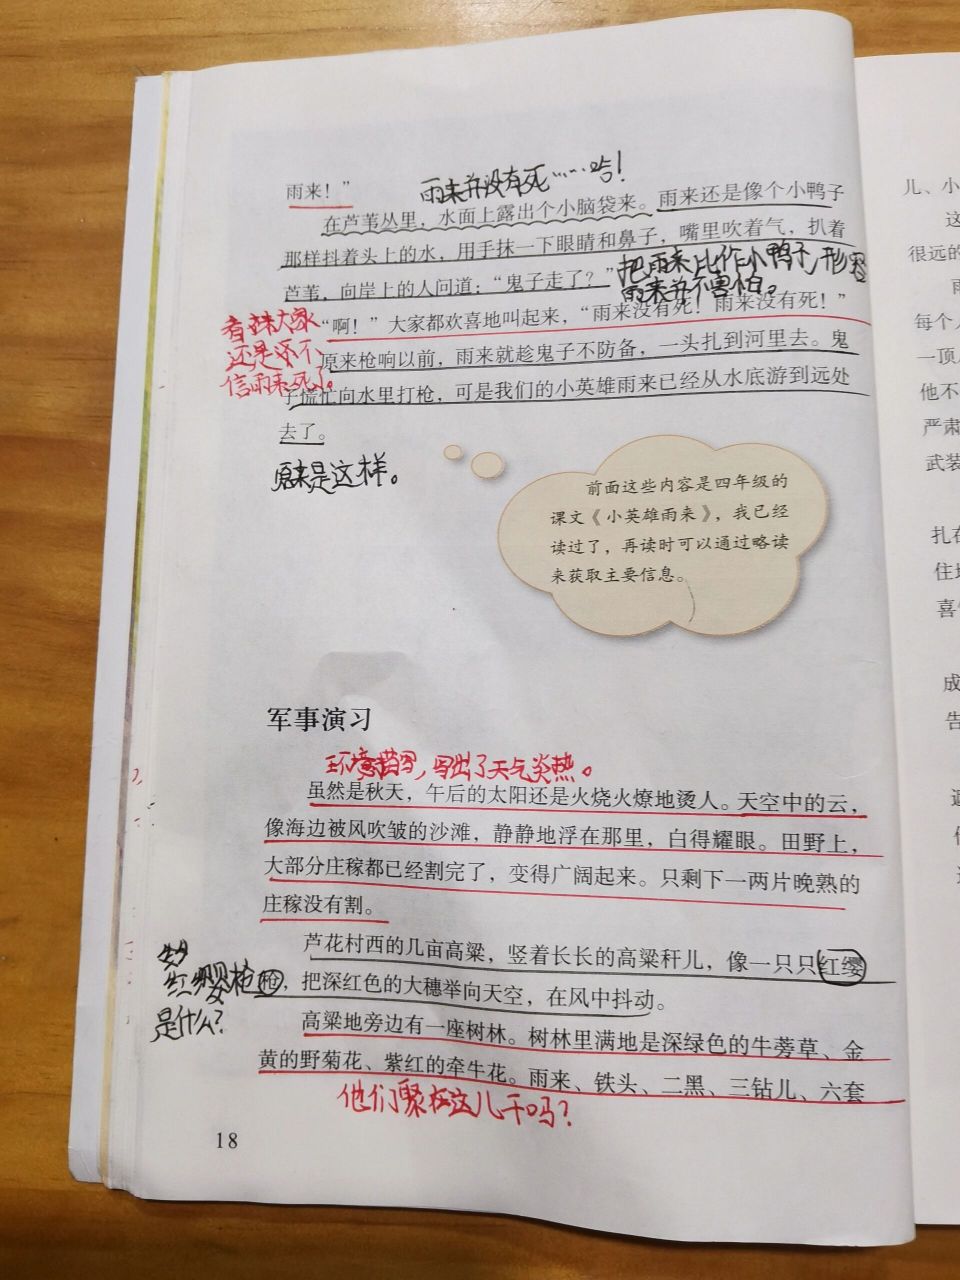 雨来并没有死……哈！
雨来！”
在芦苇丛里，水面上露出个小脑袋来。雨来还是像个小鸭子
那样抖着头上的水，用手抹一下眼睛和鼻子，嘴里吹着气，扒着
芦苇，向岸上的人问道：“鬼子走了？”
把雨来比作小鸭子，形容
雨来并不害怕。
“啊！”大家都欢喜地叫起来，“雨来没有死！雨来没有死！”
看来大家
还是不
信雨来死了。
原来枪响以前，雨来就趁鬼子不防备，一头扎到河里去。鬼
子慌忙向水里打枪，可是我们的小英雄雨来已经从水底游到远处
去了。
原来是这样。
前面这些内容是四年级的
课文《小英雄雨来》，我已经
读过了，再读时可以通过略读
来获取主要信息。
军事演习
环境描写，写出了天气炎热。
虽然是秋天，午后的太阳还是火烧火燎地烫人。天空中的云，
像海边被风吹皱的沙滩，静静地浮在那里，白得耀眼。田野上，
大部分庄稼都已经割完了，变得广阔起来。只剩下一两片晚熟的
庄稼没有割。
芦花村西的几亩高粱，竖着长长的高粱秆儿，像一只只红缨
枪，把深红色的大穗举向天空，在风中抖动。
红缨枪
是什么？
高粱地旁边有一座树林。树林里满地是深绿色的牛蒡草、金
黄的野菊花、紫红的牵牛花。雨来、铁头、二黑、三钻儿、六套
他们聚在这儿干吗？
18
儿、小
这
很远的
雨
每个人
一顶
他不
严肃
武装
扎在
住地
喜
成
告